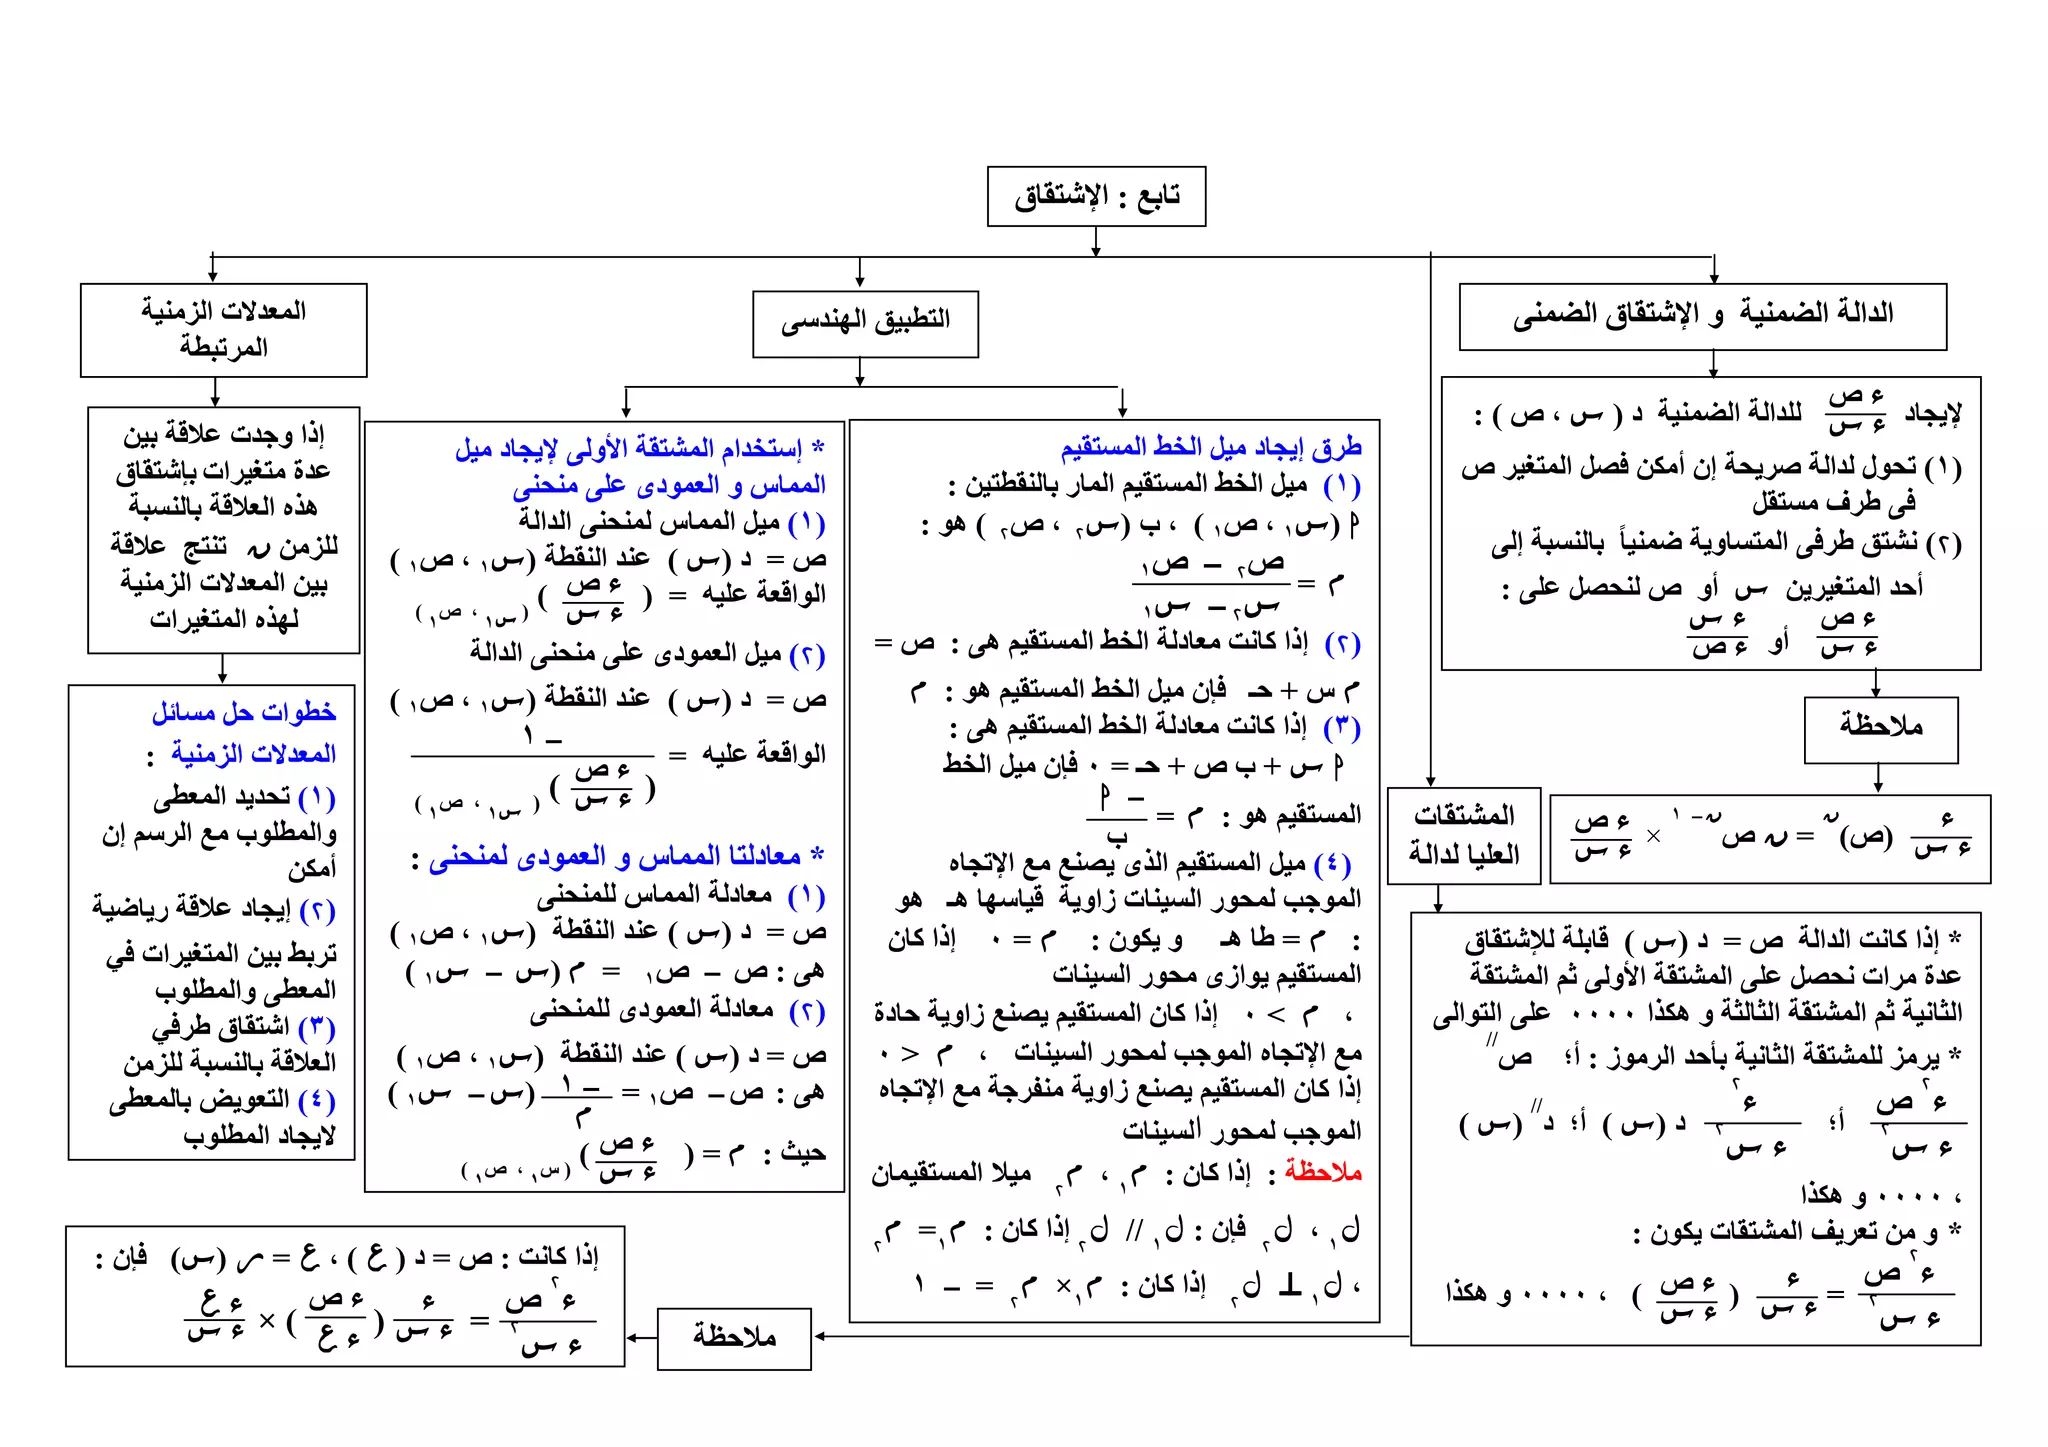 تابع : الإشتقاق
الدالة الضمنية و الإشتقاق الضمنى
لإيجاد ء ص / ء س للدالة الضمنية د ( س ، ص ) :
(١) تحول لدالة صريحة إن أمكن فصل المتغير ص
فى طرف مستقل
(٢) نشتق طرفى المتساوية ضمنياً بالنسبة إلى
أحد المتغيرين س أو ص لنحصل على :
ء ص / ء س أو ء س / ء ص
ملاحظة
ء / ء س (ص)^ن = ن ص^(ن – ١) × ء ص / ء س
المشتقات
العليا لدالة
* إذا كانت الدالة ص = د (س ) قابلة للإشتقاق
عدة مرات نحصل على المشتقة الأولى ثم المشتقة
الثانية ثم المشتقة الثالثة و هكذا ٠٠٠٠ على التوالى
* يرمز للمشتقة الثانية بأحد الرموز : أ؛ ص//
ء٢ ص / ء س٢ أ؛ ء٢ / ء س٢ د (س ) أ؛ د// (س )
، ٠٠٠٠ و هكذا
* و من تعريف المشتقات يكون :
ء٢ ص / ء س٢ = ء / ء س ( ء ص / ء س ) ، ٠٠٠٠ و هكذا
التطبيق الهندسى
طرق إيجاد ميل الخط المستقيم
(١) ميل الخط المستقيم المار بالنقطتين :
أ (س١ ، ص١ ) ، ب (س٢ ، ص٢ ) هو :
م = ص٢ – ص١ / س٢ – س١
(٢) إذا كانت معادلة الخط المستقيم هى : ص =
م س + حـ فإن ميل الخط المستقيم هو : م
(٣) إذا كانت معادلة الخط المستقيم هى :
أ س + ب ص + حـ = ٠ فإن ميل الخط
المستقيم هو : م = – أ / ب
(٤) ميل المستقيم الذى يصنع مع الإتجاه
الموجب لمحور السينات زاوية قياسها هـ هو
: م = طا هـ و يكون : م = ٠ إذا كان
المستقيم يوازى محور السينات
، م > ٠ إذا كان المستقيم يصنع زاوية حادة
مع الإتجاه الموجب لمحور السينات ، م < ٠
إذا كان المستقيم يصنع زاوية منفرجة مع الإتجاه
الموجب لمحور ألسينات
ملاحظة : إذا كان : م١ ، م٢ ميلا المستقيمان
ل١ ، ل٢ فإن : ل١ // ل٢ إذا كان : م١ = م٢
، ل١ ⊥ ل٢ إذا كان : م١ × م٢ = – ١
* إستخدام المشتقة الأولى لإيجاد ميل
المماس و العمودى على منحنى
(١) ميل المماس لمنحنى الدالة
ص = د (س ) عند النقطة (س١ ، ص١ )
الواقعة عليه = ( ء ص / ء س ) (س١ ، ص١ )
(٢) ميل العمودى على منحنى الدالة
ص = د (س ) عند النقطة (س١ ، ص١ )
الواقعة عليه = – ١ / ( ء ص / ء س ) ( س١ ، ص١ )
* معادلتا المماس و العمودى لمنحنى :
(١) معادلة المماس للمنحنى
ص = د (س ) عند النقطة (س١ ، ص١ )
هى : ص – ص١ = م (س – س١ )
(٢) معادلة العمودى للمنحنى
ص = د (س ) عند النقطة (س١ ، ص١ )
هى : ص – ص١ = – ١ / م (س – س١ )
حيث : م = ( ء ص / ء س ) ( س١ ، ص١ )
المعدلات الزمنية
المرتبطة
إذا وجدت علاقة بين
عدة متغيرات بإشتقاق
هذه العلاقة بالنسبة
للزمن ن تنتج علاقة
بين المعدلات الزمنية
لهذه المتغيرات
خطوات حل مسائل
المعدلات الزمنية :
(١) تحديد المعطى
والمطلوب مع الرسم إن
أمكن
(٢) إيجاد علاقة رياضية
تربط بين المتغيرات في
المعطى والمطلوب
(٣) اشتقاق طرفي
العلاقة بالنسبة للزمن
(٤) التعويض بالمعطى
لايجاد المطلوب
ملاحظة
إذا كانت : ص = د ( ع ) ، ع = ر (س) فإن :
ء٢ ص / ء س٢ = ء / ء س ( ء ص / ء ع ) × ء ع / ء س